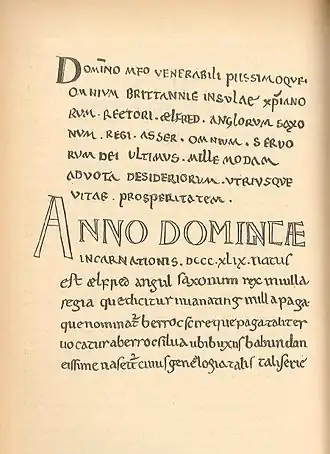 DOMINO MEO VENERABILI PIISSIMOQUE·
OMNIUM BRITTANNIE INSULAE XPIANO
RUM· RECTORI· ÆLFRED· ANGLORUM SAXO
NUM· REGI· ASSER· OMNIUM· SERVO
RUM DEI ULTIMUS· MILLE MODAM
ADVOTA DESIDERIORUM· UTRIUSQUE
VITAE· PROSPERITATEM·
ANNO DOMINICÆ
INCARNATIONIS· DCCC·XLIX· natus
est ælfred angul saxonum rex in uilla
regia que dicitur uuanating in illa paga
que nominat̅ berrocscire que paga taliter
uocatur a berroc silua ubi buxus habundan
tissime nascit̅ cuius genelogia talis tali serie